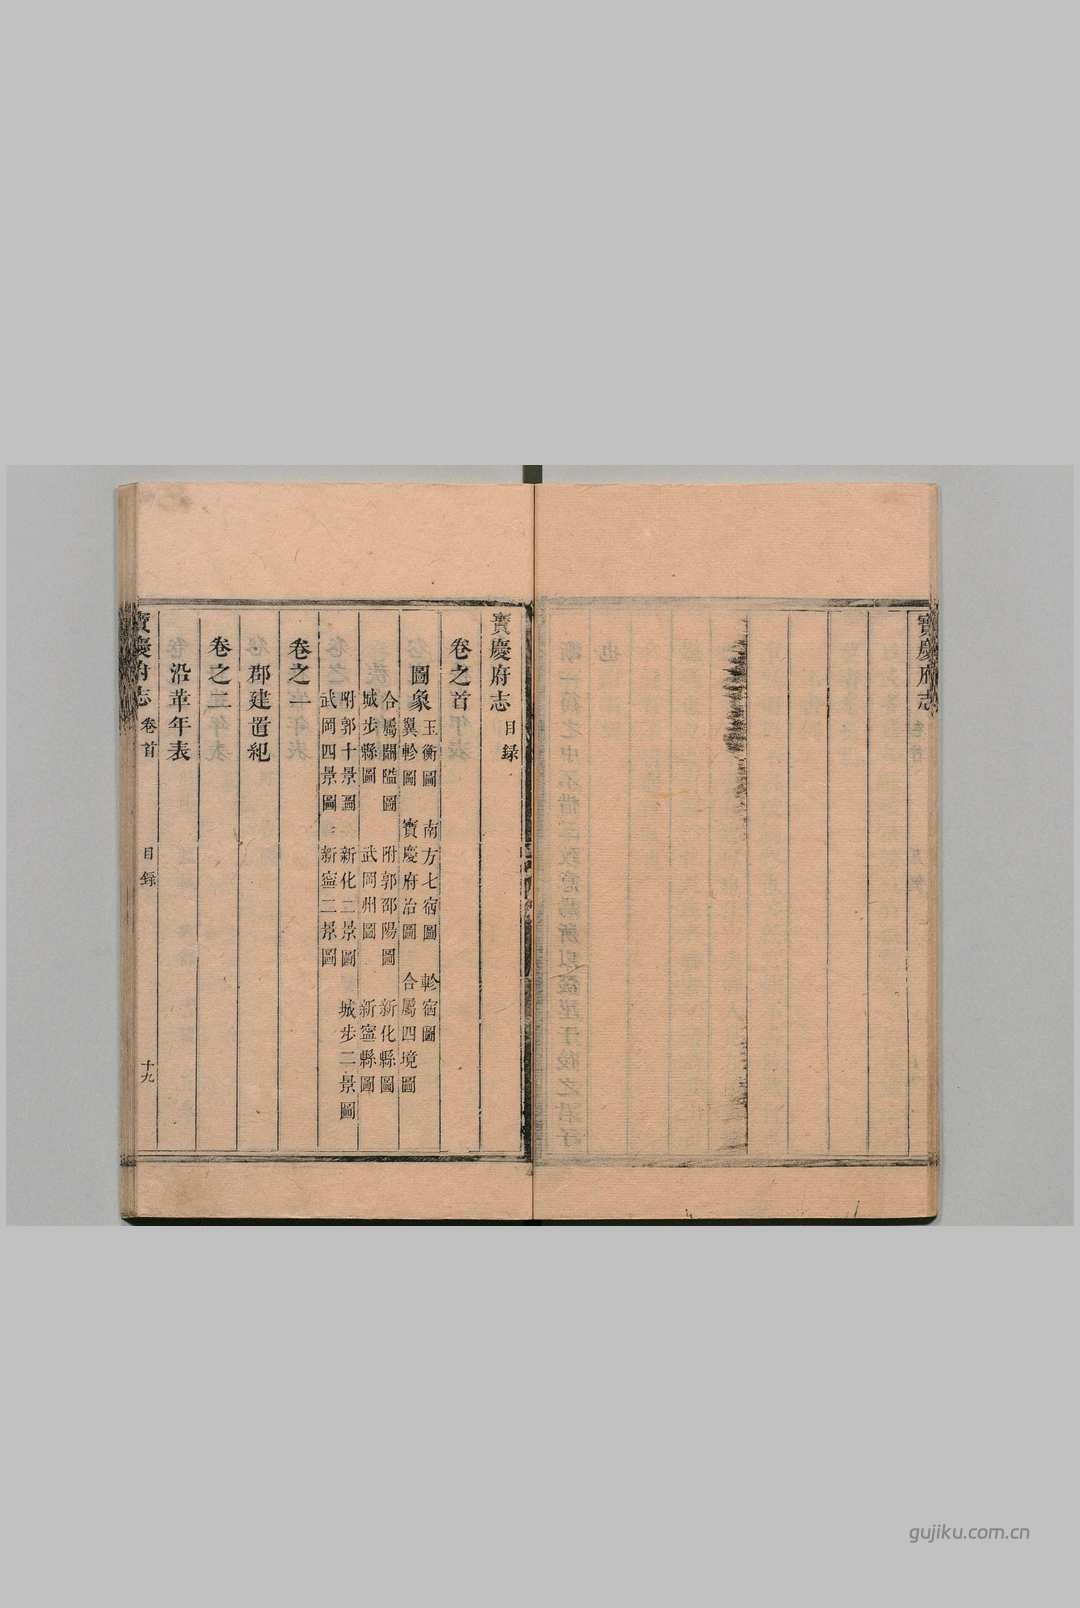 寶慶府志
寶慶府志目録
卷之首
圖象
玉衡圖 南方七宿圖 軫宿圖
翼軫圖 寶慶府治圖 合屬四境圖
合屬關隘圖 附郭邵陽圖 新化縣圖
城步縣圖 武岡州圖 新寧縣圖
附郭十景圖 新化二景圖 城步二景圖
武岡四景圖 新寧二景圖
卷之一
郡建置紀
卷之二
沿革年表
寶慶府志 卷首 目録 十九
gujiku.com.cn